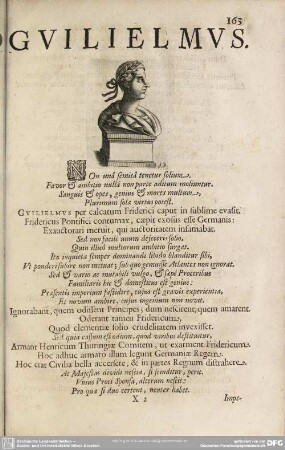 163
GVILIELMVS.
NOn unâ semitâ tenetur solium.
Favor & ambitio multis non parte aditum moliuntur.
Sanguis & opes, genius & mores multum,
Plurimum sola virtus potest.
GVILIELMVS per calcatum Friderici caput in sublime evasit.
Fridericus Pontifici contumax, capit exosus esse Germanis:
Exauctorari meruit, qui auctoritatem infamabat.
Sed non facile unum deserere solio,
Quin illud multorum ambitio surgat.
Ita inquieta semper dominandi libido blanditur sibi,
Vt ponderi subire non metuat; sub quo gemuisse Atlantes non ignorat.
Sed & vario ac mutabili vulgo, & sæpe Proceribus
Familiaris hic & domesticus est genius:
Præsentis imperium fastidire, cujus est gravis experientia,
Et novum ambire, cujus ingenium non novit.
Ignorabant, quem odissent Principes; dum nescirent, quem amarent.
Oderant tamen Fridericum,
Quod clementiæ solio crudelitatem invexisset.
Sed quia cassum est odium, quod verbis destituitur,
Armant Henricum Thuringiæ Comitem, ut exarment Fridericum.
Hoc adhuc armato illum legunt Germaniæ Regem.
Hoc erat Civilia bella accersere, & in partes Regnum distrahere.
At Majestas dividi nescia, si scinditur, perit.
Vnius Proci Sponsa, alterum nescit:
Pro quâ si duo certent, neuter habet.
X 2
Impe-